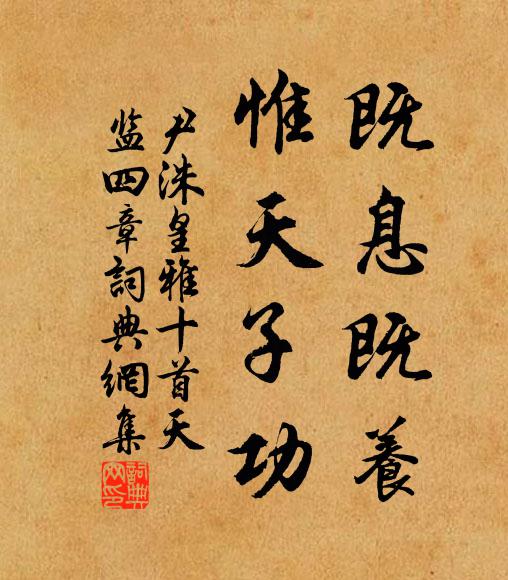 既息既養
惟天子功
尹洙皇雅十首天
监四章詞典網集
詞典
网印